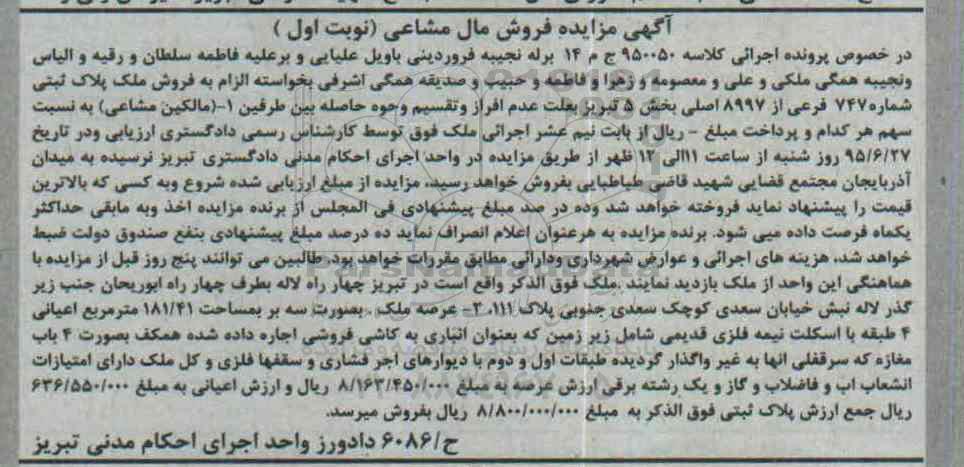 آگهی مزایده فروش مال مشاعی (نوبت اول )
در خصوص پرونده اجرائی کلاسه ۹۵۰۰۵۰ ج م ۱۴ برله نجیبه فروردینی باویل علیایی و برعلیه فاطمه سلطان و رقیه و الیاس
ونجیبه همگی ملکی و علی و معصومه و زهرا و فاطمه و حبیب و صدیقه همگی اشرفی بخواسته الزام به فروش ملک پلاک ثبتی
شماره۷۴۷ فرعی از ۸۹۹۷ اصلی بخش ۵ تبریز بعلت عدم افراز وتقسیم وجوه حاصله بین طرفین ۱-(مالکین مشاعی) به نسبت
سهم هر کدام و پرداخت مبلغ - ریال از بابت نیم عشر اجرائی ملک فوق توسط کارشناس رسمی دادگستری ارزیابی ودر تاریخ
۹۵/۶/۲۷ روز شنبه از ساعت ۱۱الی ۱۲ ظهر از طریق مزایده در واحد اجرای احکام مدنی دادگستری تبریز نرسیده به میدان
آذربایجان مجتمع قضایی شهید قاضی طباطبایی بفروش خواهد رسید، مزایده از مبلغ ارزیابی شده شروع وبه کسی که بالاترین
قیمت را پیشنهاد نماید فروخته خواهد شد وده در صد مبلغ پیشنهادی فی المجلس از برنده مزایده اخذ وبه مابقی حداکثر
یکماه فرصت داده میی شود. برنده مزایده به هرعنوان اعلام انصراف نماید ده درصد مبلغ پیشنهادی بنفع صندوق دولت ضبط
خواهد شد، هزینه های اجرائی و عوارض شهرداری ودارائی مطابق مقررات خواهد بود. طالبین می توانند پنج روز قبل از مزایده با
هماهنگی این واحد از ملک بازدید نمایند .ملک فوق الذکر واقع است در تبریز چهار راه لاله بطرف چهار راه ابوریحان جنب زیر
گذر لاله نبش خیابان سعدی کوچک سعدی جنوبی پلاک ۱۱۱، ۲- عرصه ملک . بصورت سه بر بمساحت ۱۸۱/۴۱ مترمربع اعیانی
۴ طبقه با اسکلت نیمه فلزی قدیمی شامل زیر زمین که بعنوان انباری به کاشی فروشی اجاره داده شده همکف بصورت ۴ باب
مغازه که سرقفلی انها به غیر واگذار گردیده طبقات اول و دوم با دیوارهای اجر فشاری و سقفها فلزی و کل ملک دارای امتیازات
انشعاب اب و فاضلاب و گاز و یک رشته برقی ارزش عرصه به مبلغ ۸/۱۶۳/۴۵۰/۰۰۰ ریال و ارزش اعیانی به مبلغ ۶۳۶/۵۵۰/۰۰۰
ریال جمع ارزش پلاک ثبتی فوق الذکر به مبلغ ۸/۸۰۰/۰۰۰/۰۰۰ ریال بفروش میرسد.
ح/۶۰۸۶ دادورز واحد اجرای احکام مدنی تبریز
ParsNamadData